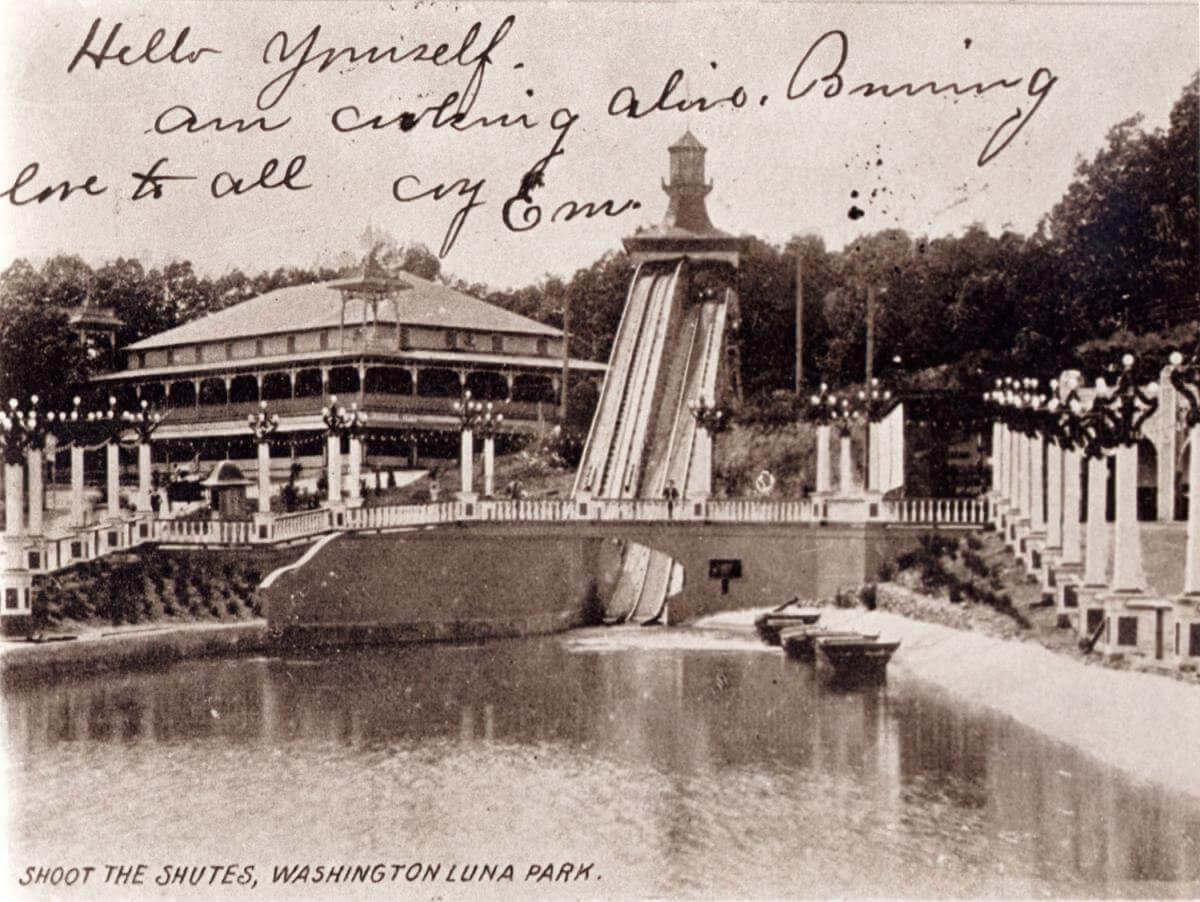 Hello Yourself.
am cooking alive. Burning
love to all
Em.
SHOOT THE SHUTES, WASHINGTON LUNA PARK.